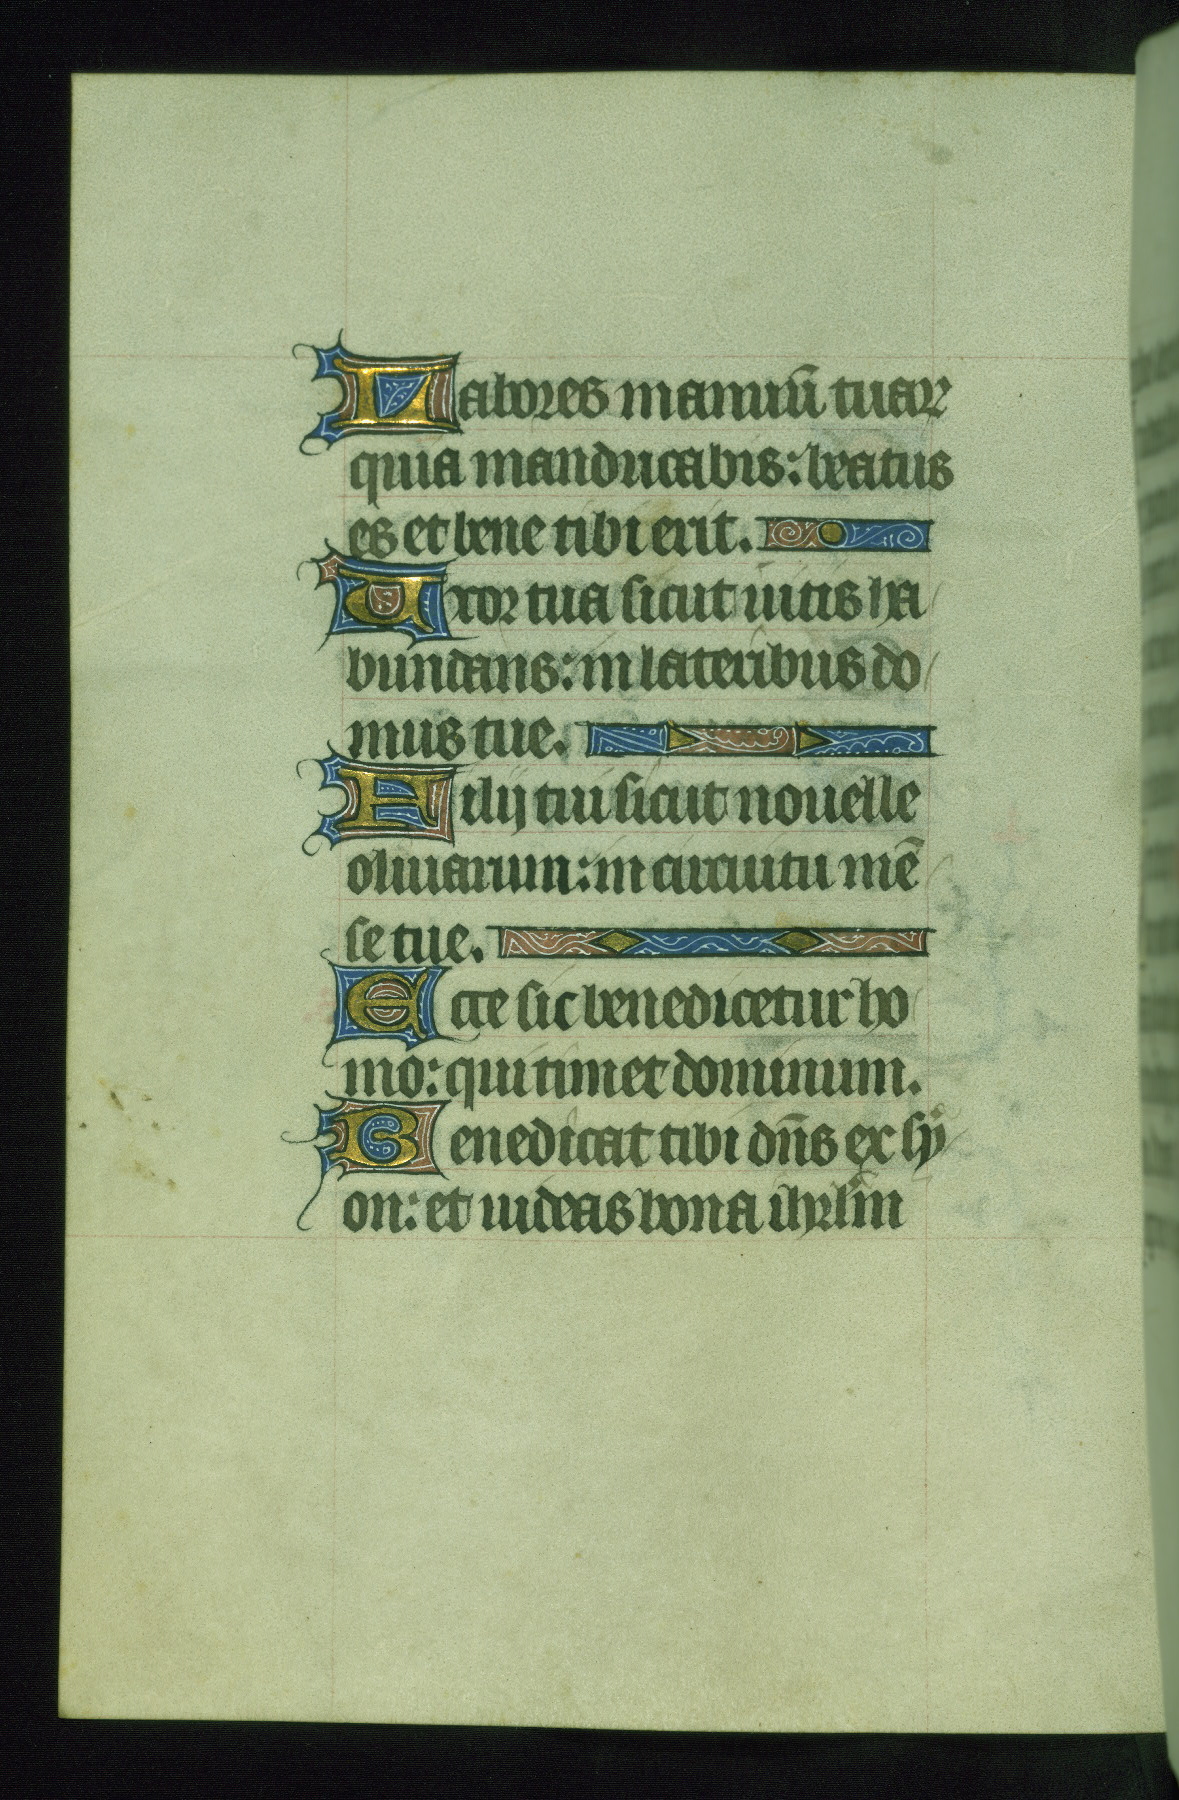 Labores manuū tuaꝝ
quia manducabis: beatus
es et bene tibi erit.
Uxor tua sicut uitis ha
bundans: in lateribus do
mus tue.
Filij tui sicut nouelle
oliuarum: in circuitu mē
se tue.
Ecce sic benedicetur ho
mo: qui timet dominum.
Benedicat tibi dn̄s ex sy
on: et uideas bona ihrl̄m